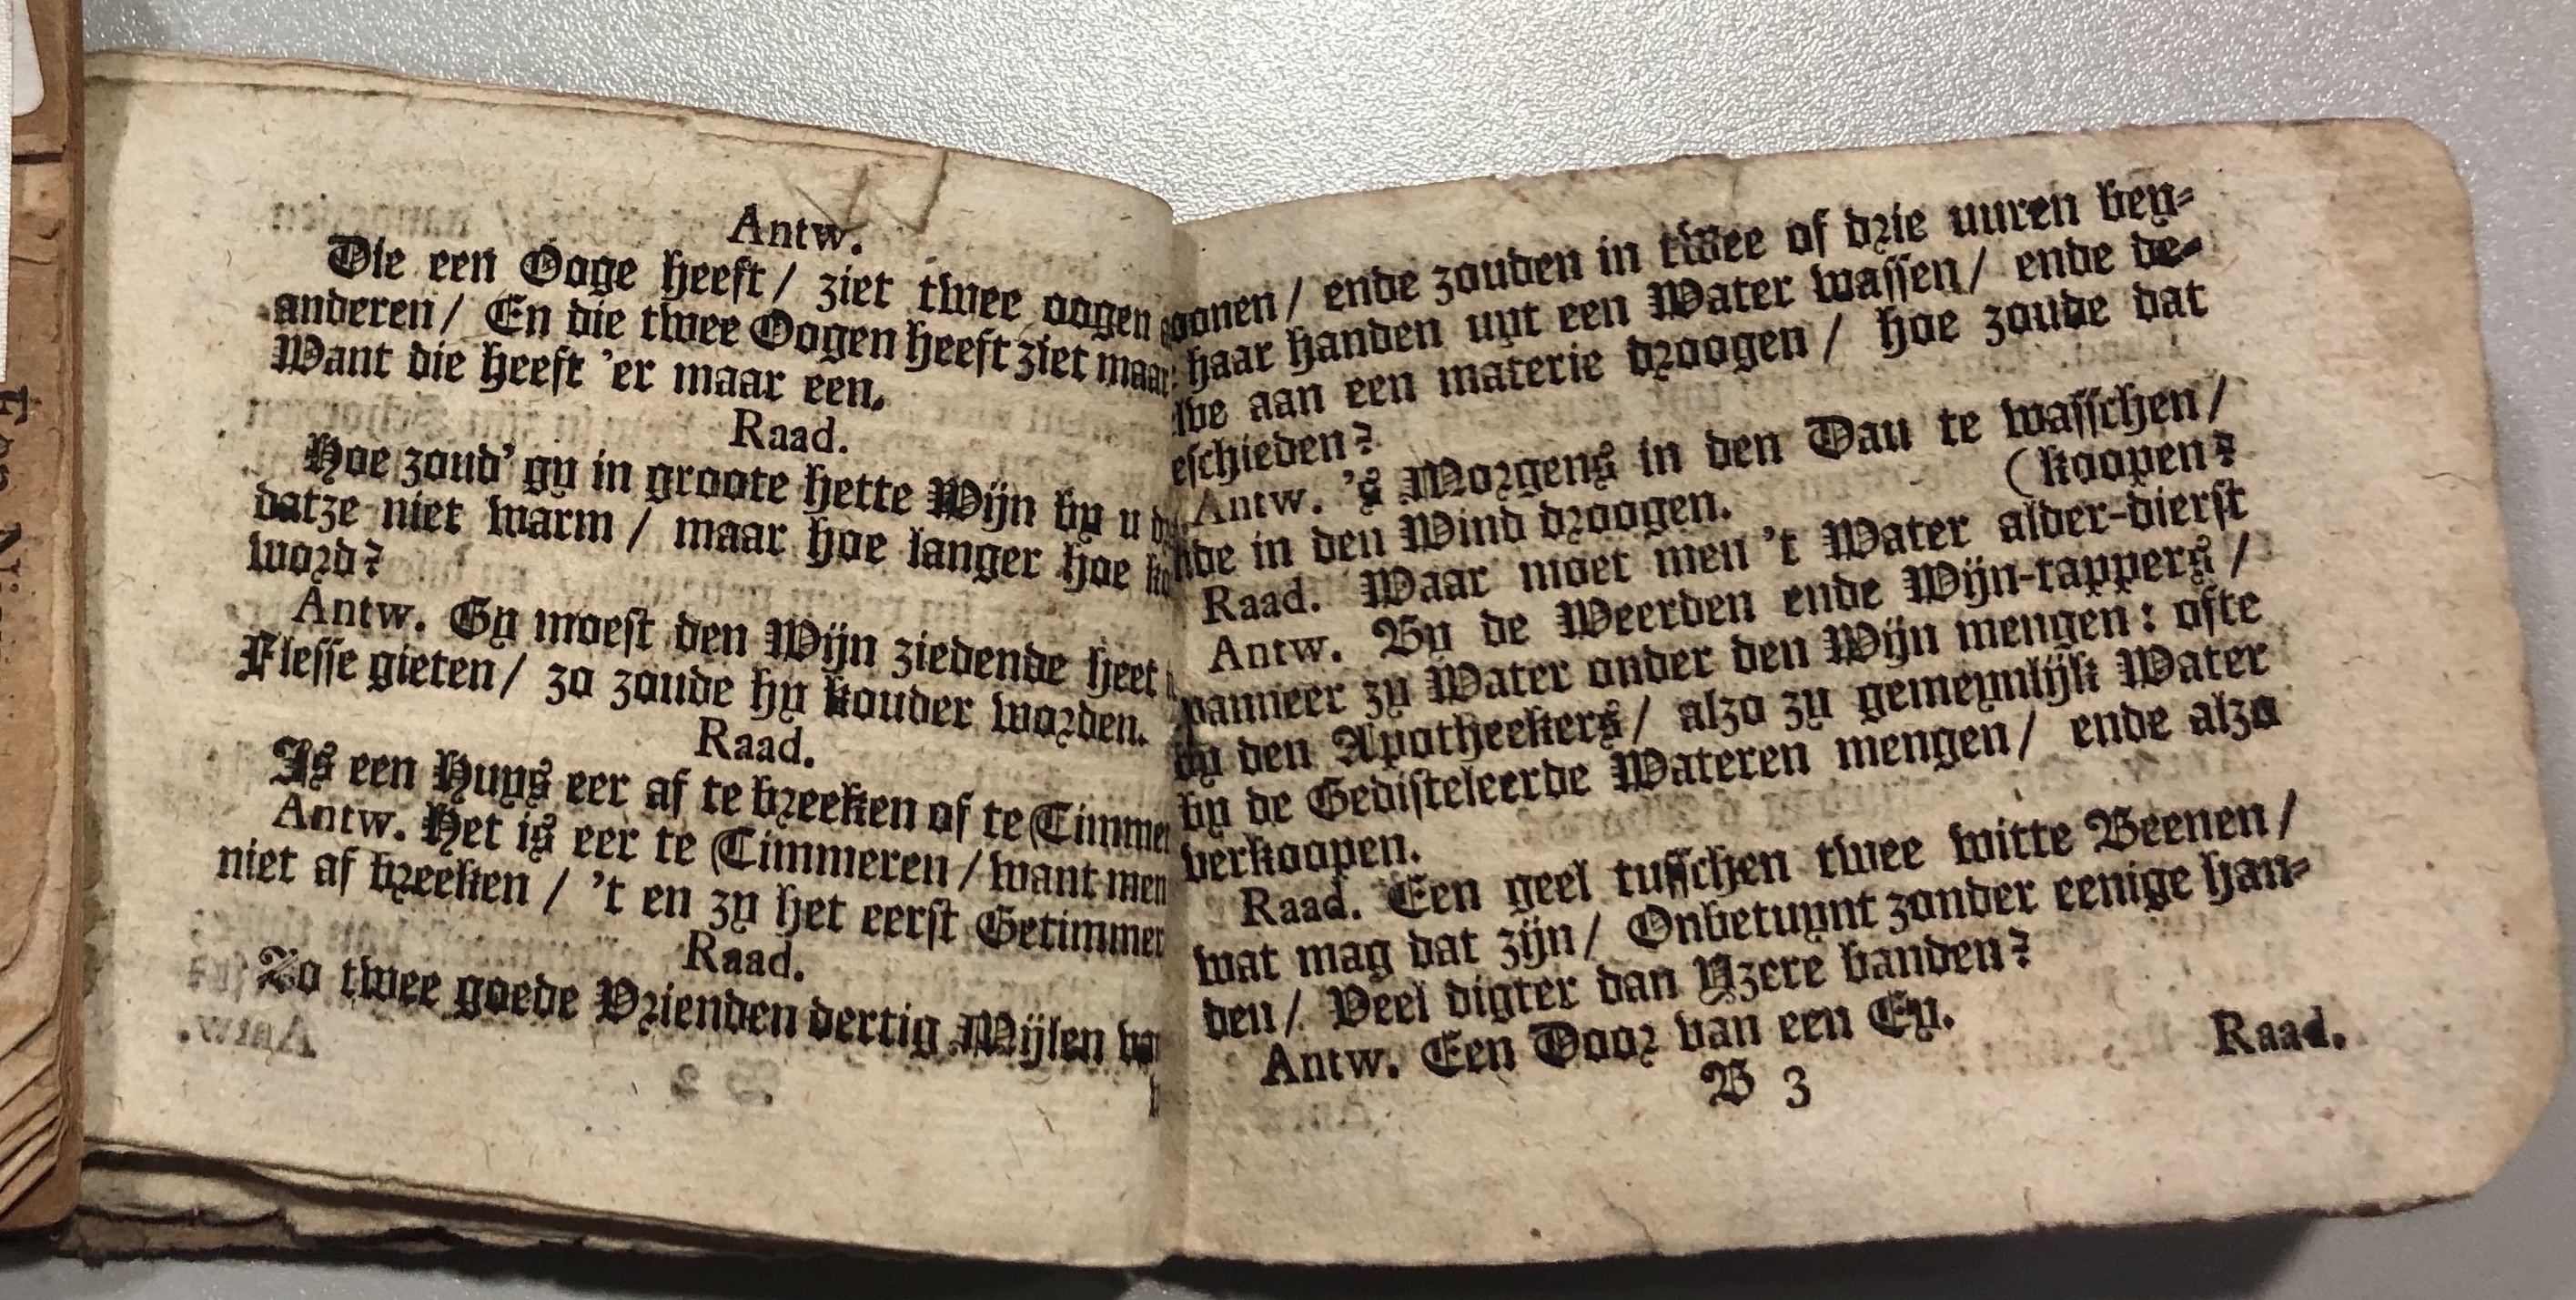 Antw.
Die een Ooge heeft / ziet twee oogen
anderen / En die twee Oogen heeft ziet maar
Want die heeft 'er maar een.
Raad.
Hoe zoud' gy in groote hette Wijn by u
datze niet warm / maar hoe langer hoe
word?
Antw. Gy moest den Wijn ziedende heet
Flesse gieten / zo zoude hy kouder worden.
Raad.
Is een Huys eer af te breeken of te Timmer
Antw. Het is eer te Timmeren / want men
niet af breeken / 't en zy het eerst Getimmer
Raad.
Zo twee goede Vrienden dertig Mijlen
oonen / ende zouden in twee of drie uuren bey-
haar handen uyt een Water wassen / ende de-
lve aan een materie droogen / hoe zoude dat
eschieden?
Antw. 's Morgens in den Dau te wasschen /
nde in den Wind droogen. (koopen?
Raad. Waar moet men 't Water alder-dierst
Antw. By de Weerden ende Wijn-tappers /
wanneer zy Water onder den Wijn mengen: ofte
by den Apotheekers / alzo zy gemeynlijk Water
by de Gedisteleerde Wateren mengen / ende alzo
verkoopen.
Raad. Een geel tusschen twee witte Beenen /
wat mag dat zijn / Onbetuynt zonder eenige han-
den / Veel digter dan Yzere banden?
Antw. Een Door van een Ey.
B 3 Raad.